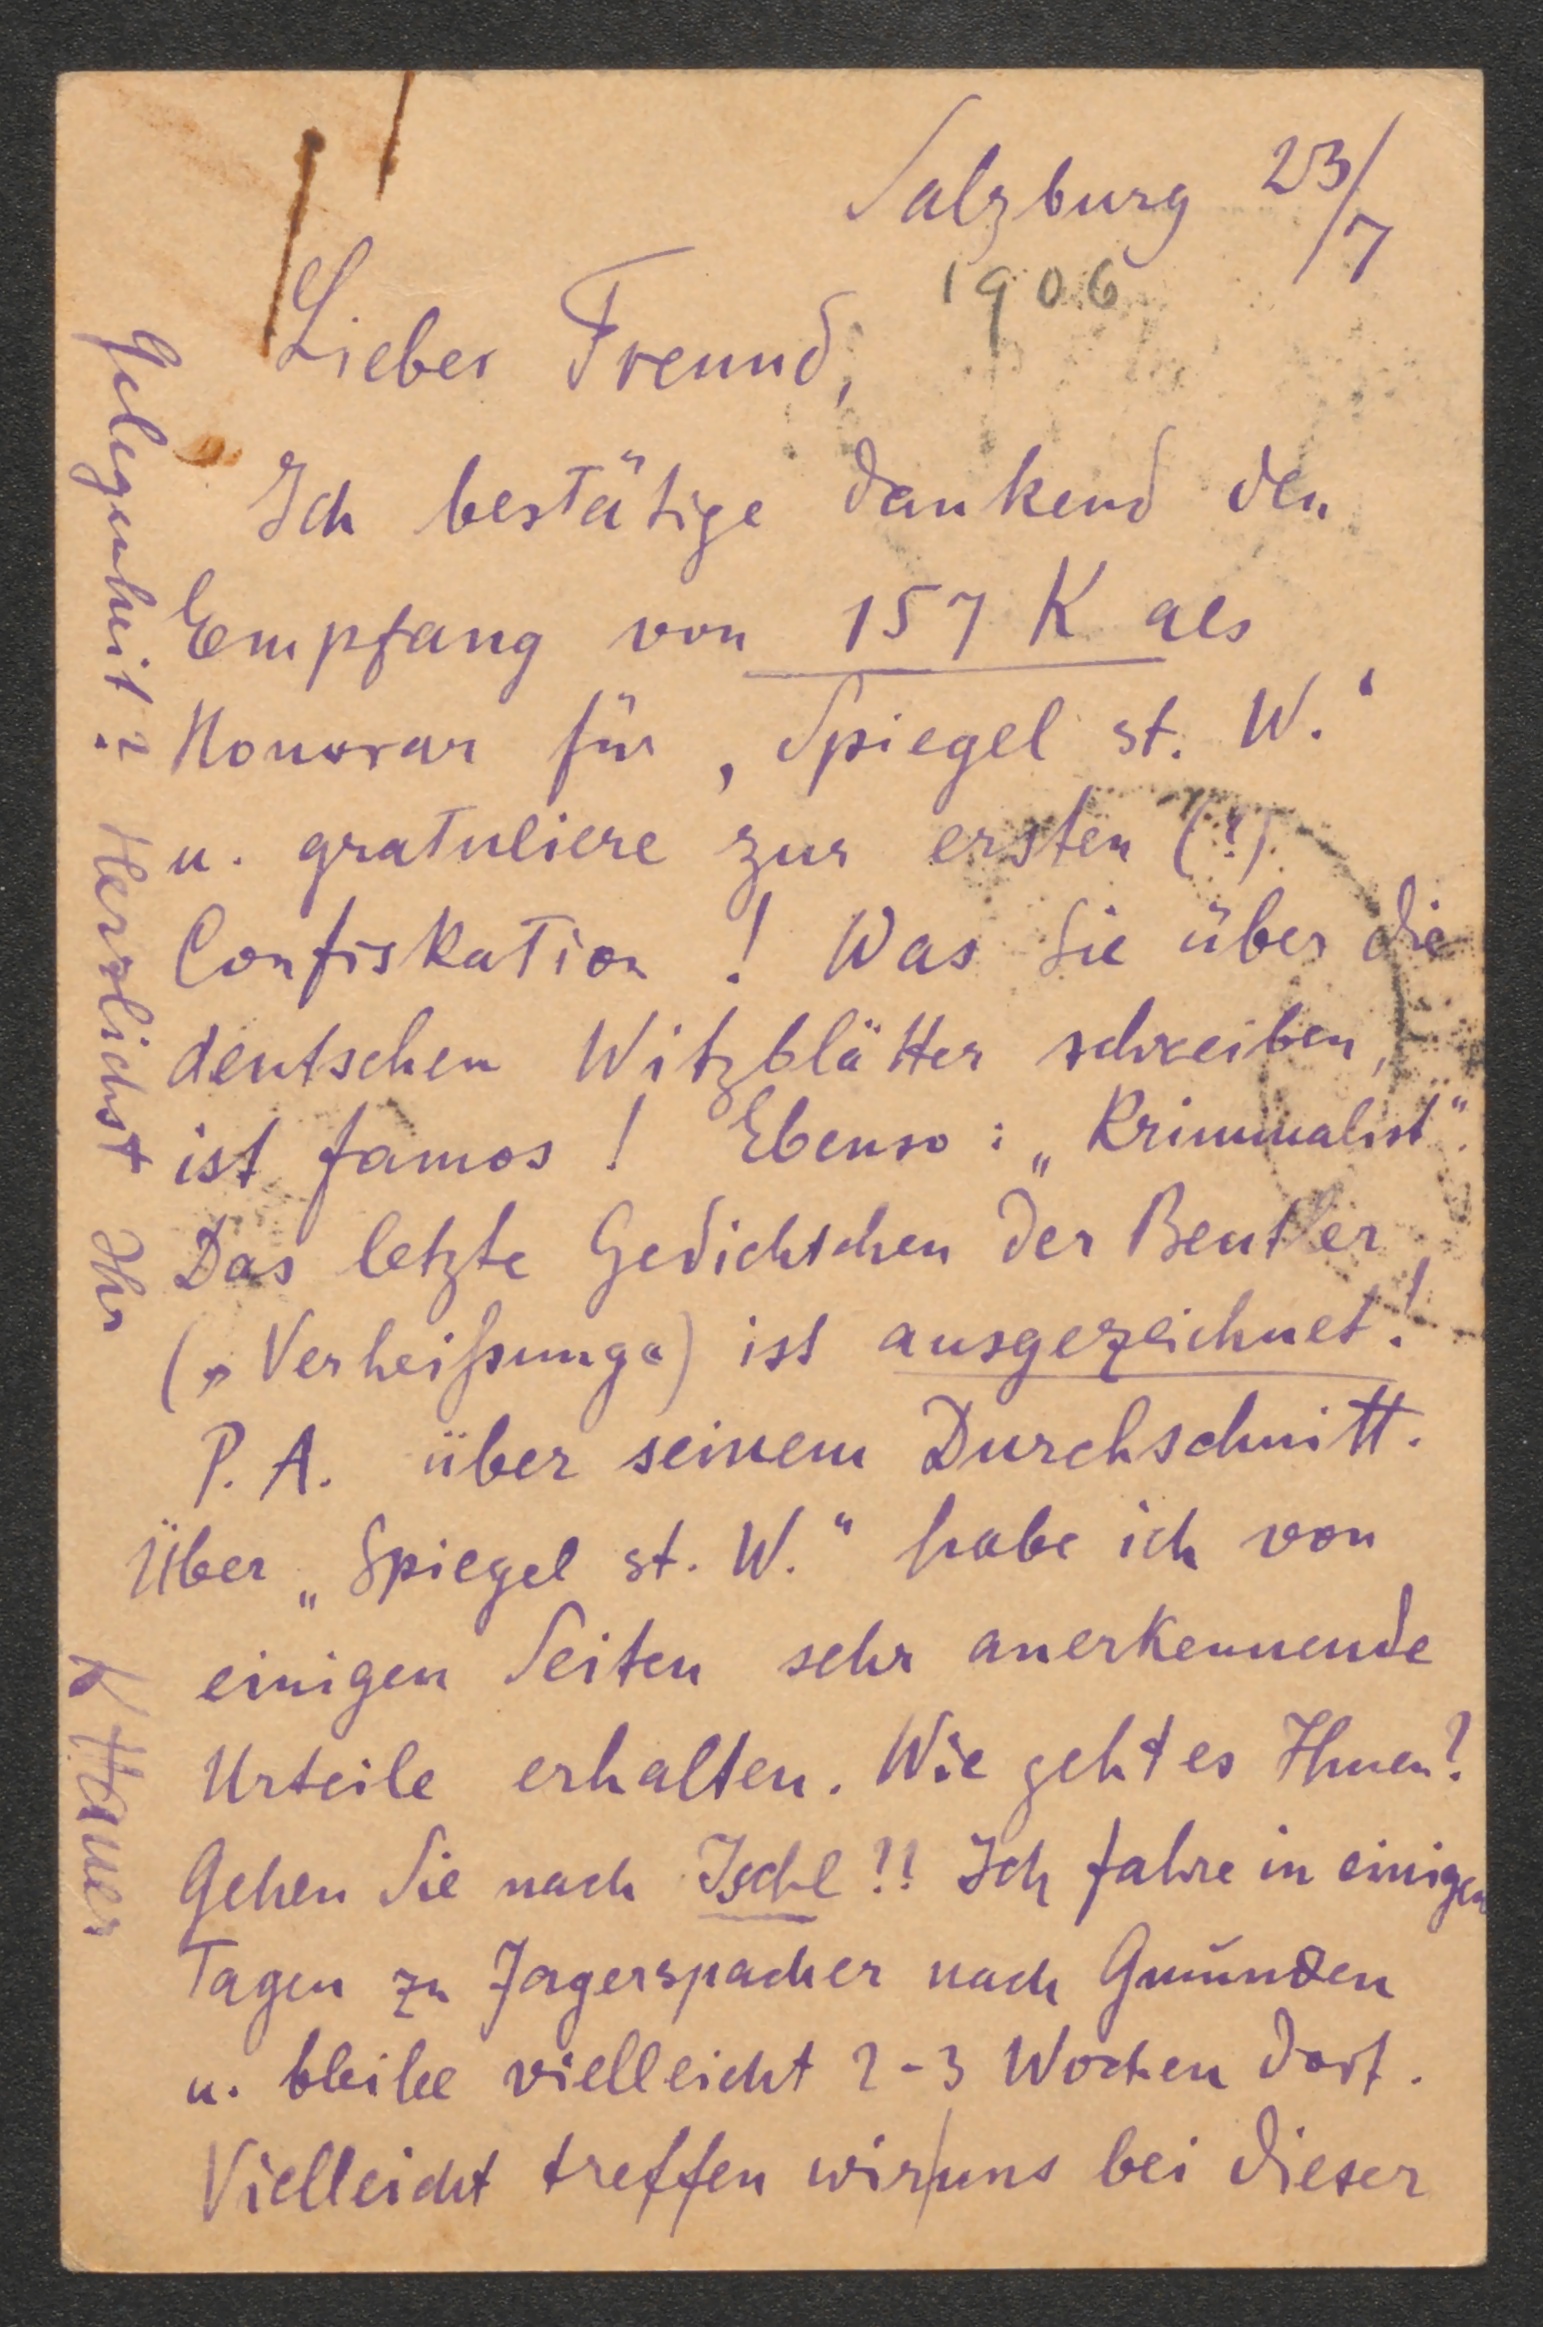 Salzburg 23/7
1906
Lieber Freund,
Ich bestätige dankend den
Empfang von 157 K als
Honorar für ‚Spiegel st. W.‘
u. gratuliere zur ersten (?)
Confiskation ! Was Sie über die
deutschen Witzblätter schreiben,
ist famos ! Ebenso : „Kriminalist“.
Das letzte Gedichtchen der Beutler
(„Verheißung“) ist ausgezeichnet !
P. A. über seinem Durchschnitt.
Über „Spiegel st. W.“ habe ich von
einigen Seiten sehr anerkennende
Urteile erhalten. Wie geht es Ihnen?
Gehen Sie nach Ischl ?! Ich fahre in einigen
Tagen zu Jagerspacher nach Gmunden
u. bleibe vielleicht 2-3 Wochen dort.
Vielleicht treffen wir/uns bei dieser
Gelegenheit? Herzlichst Ihr K Hauer